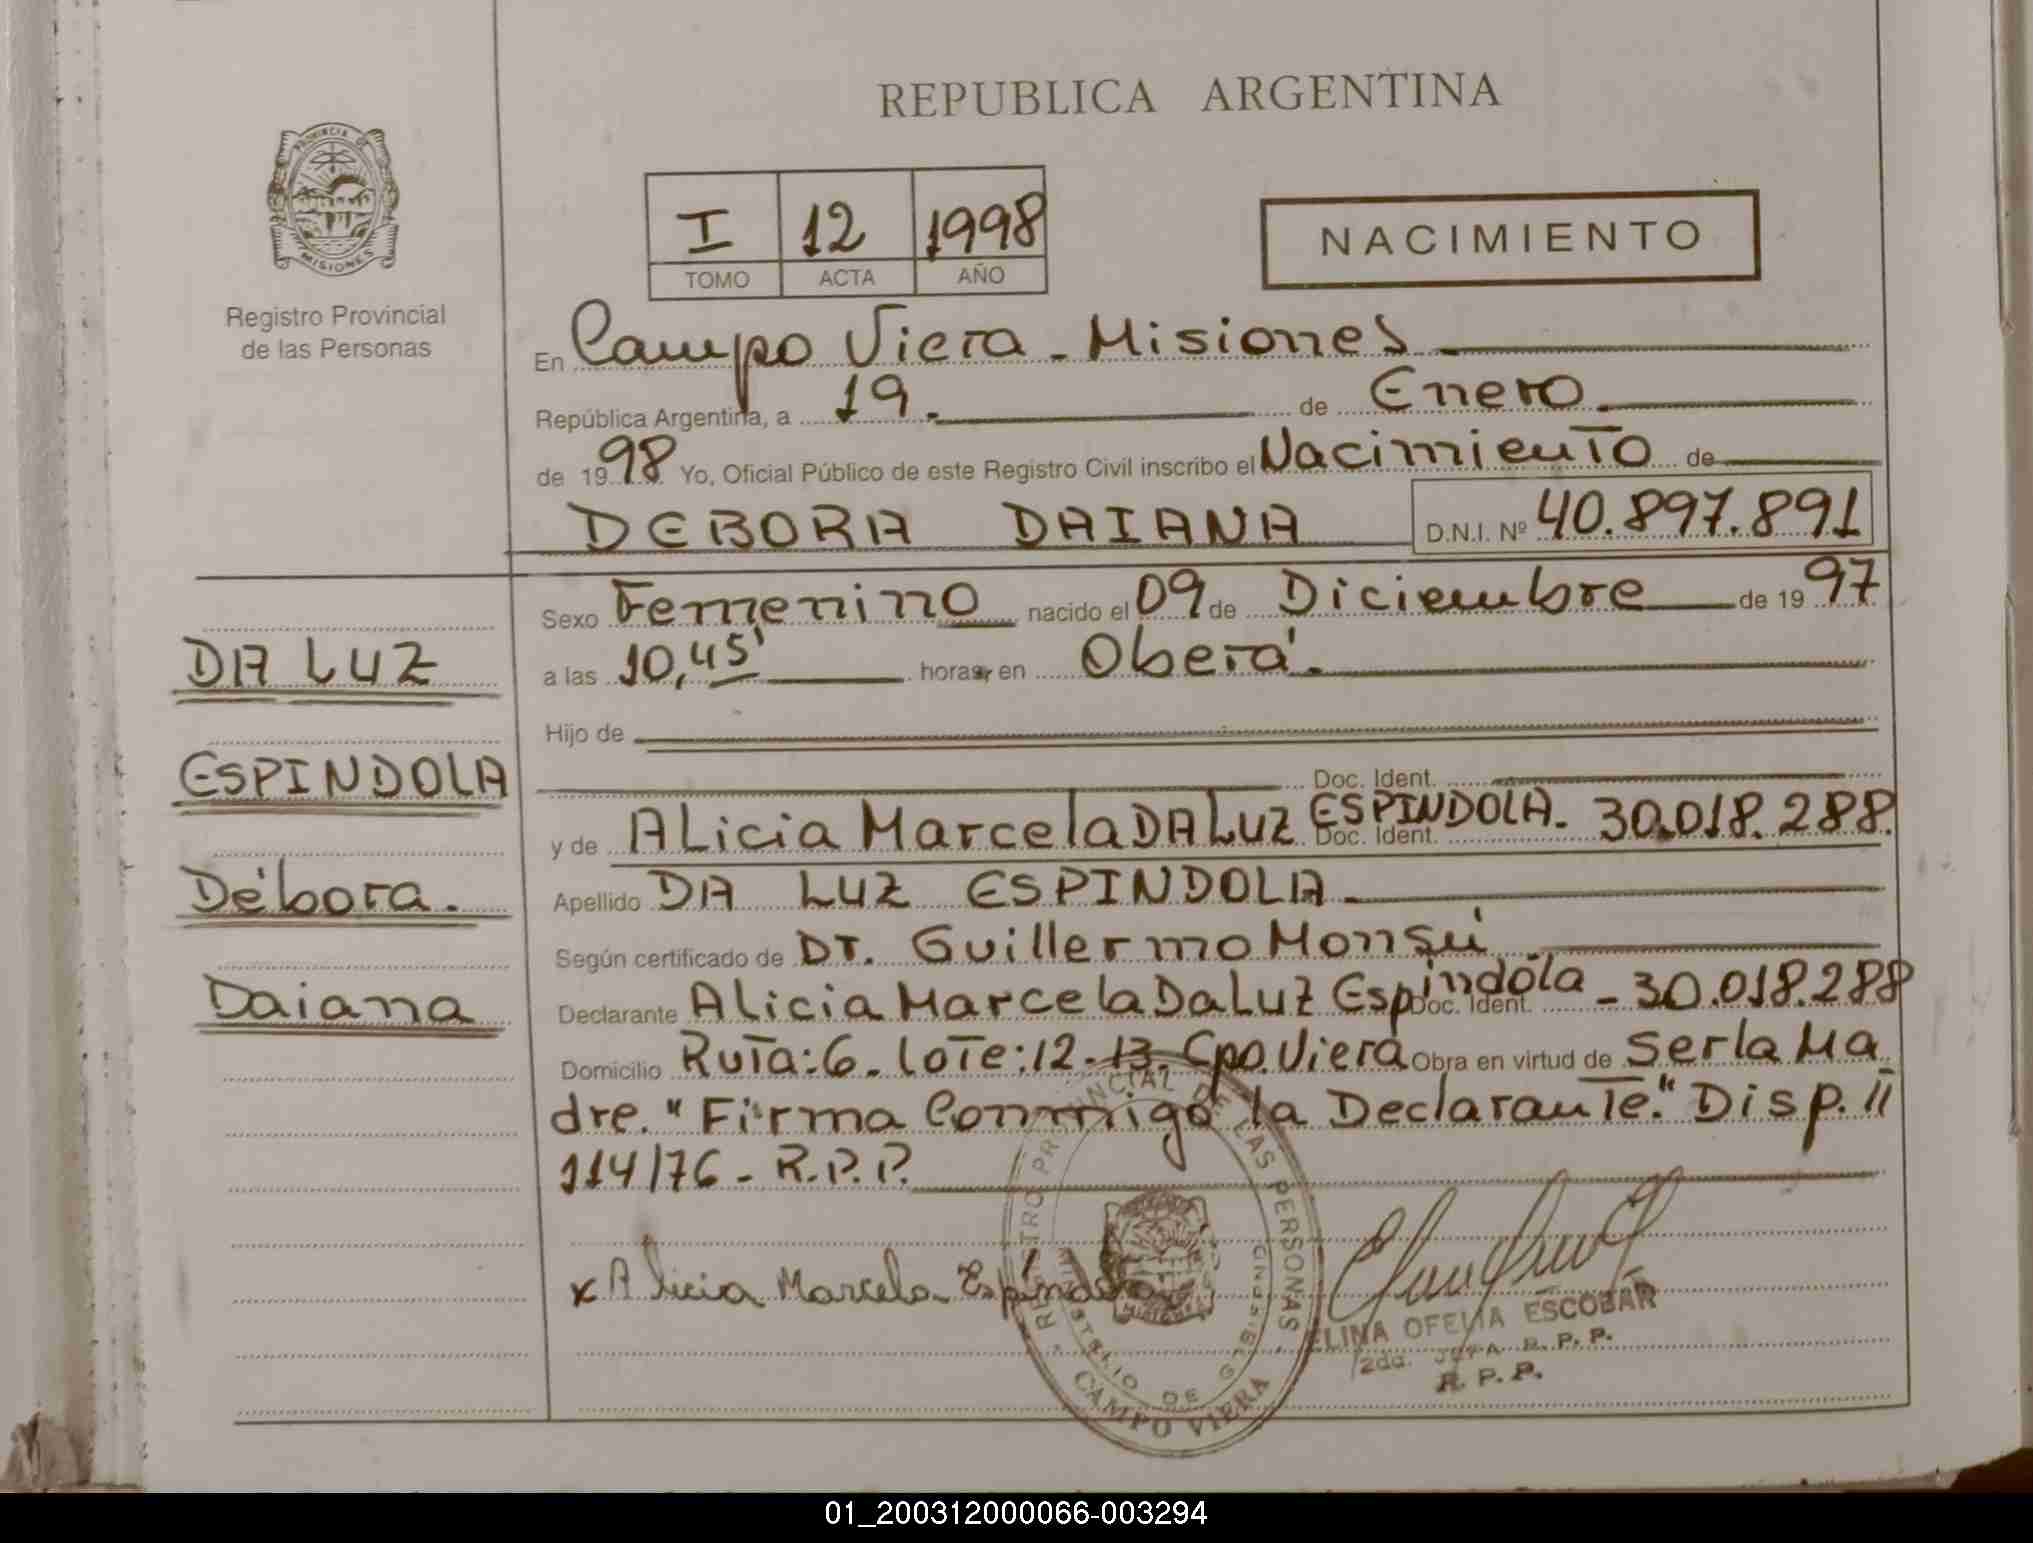 REPUBLICA ARGENTINA
PROVINCIA DE
MISIONES
Registro Provincial
de las Personas
I 12 1998
TOMO ACTA AÑO
NACIMIENTO
En Campo Viera - Misiones
República Argentina, a 19. de Enero
de 1998 Yo, Oficial Público de este Registro Civil inscribo el Nacimiento de
DEBORA DAIANA D.N.I. Nº 40.897.891
DA LUZ
ESPINDOLA
Débora.
Daiana
Sexo Femenino nacido el 09 de Diciembre de 1997
a las 10,45' horas, en Oberá.
Hijo de
Doc. Ident.
y de ALicia Marcela DA LUZ ESPINDOLA. Doc. Ident. 30.018.288.
Apellido DA LUZ ESPINDOLA
Según certificado de Dr. Guillermo Monsú
Declarante Alicia Marcela Da Luz Espindola Doc. Ident. - 30.018.288
Domicilio Ruta: 6. Lote: 12-13. Cpo. Viera Obra en virtud de Ser la Ma
dre. "Firma Conmigo la Declarante." Disp. II
114/76 - R.P.P.
x Alicia Marcela Espindola
REGISTRO PROVINCIAL DE LAS PERSONAS
MINISTERIO DE GOBIERNO
CAMPO VIERA
ELINA OFELIA ESCOBAR
2da. JEFA R.P.P.
R.P.P.
01_200312000066-003294